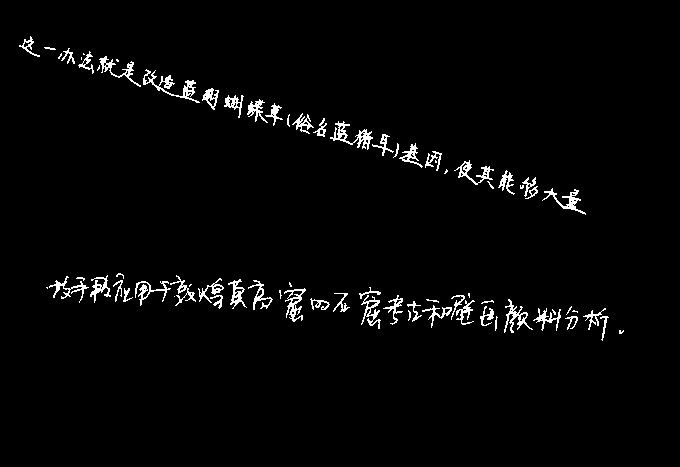 这一办法就是改造蓝翅蝴蝶草(俗名蓝猪耳)基因,使其能够大量
技手段应用于敦煌莫高窟的石窟考古和壁画颜料分析.